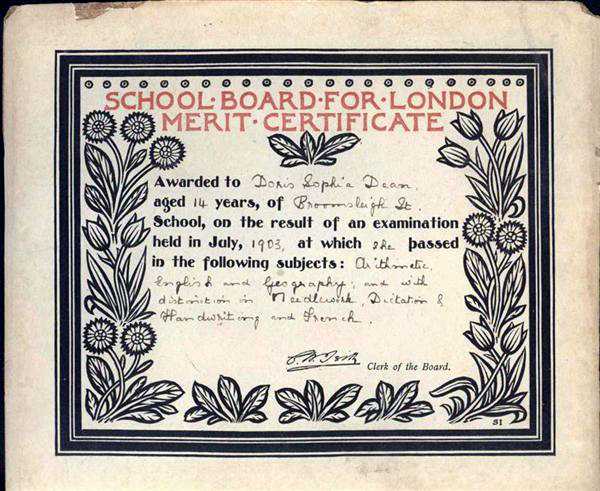 SCHOOL·BOARD·FOR·LONDON
MERIT·CERTIFICATE
Awarded to Doris Sophia Dean
aged 14 years, of Broomsleigh St
School, on the result of an examination
held in July, 1903, at which she passed
in the following subjects: Arithmetic,
English and Geography; and with
distinction in Needlework, Dictation &
Handwriting and French.
Clerk of the Board.
S1